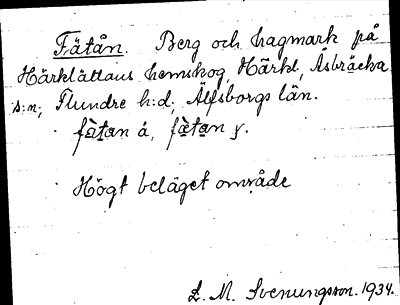 Fätån. Berg och hagmark på
Härklättans hemskog, Härkl, Åsbräcka
s:n, Flundre h:d, Älfsborgs län.
fä̀tan å, fä̀tan y.
Högt beläget område
L. M. Svenungsson. 1934.